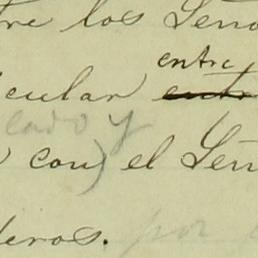 tre los Seño
entre
cular entre
cado y
con) el Señ
deros. por